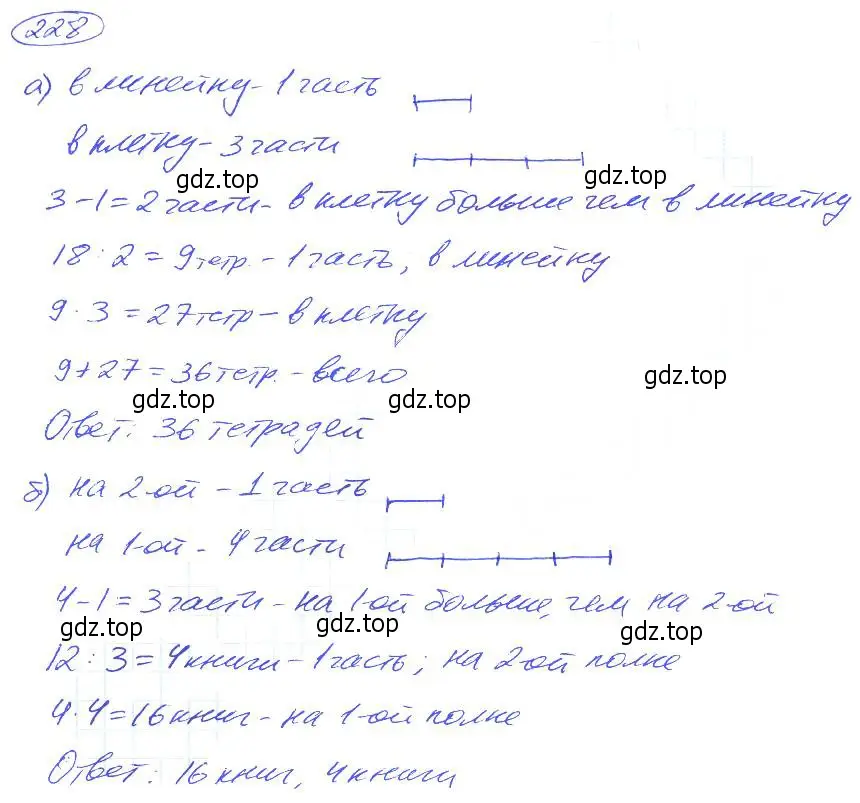 228
а) в линейку - 1 часть
в клетку - 3 части
gdz.top gdz.top
3-1=2 части - в клетку больше, чем в линейку
18:2=9 тетр. - 1 часть; в линейку
9·3=27 тетр - в клетку
9+27=36 тетр. - всего
gdz.top gdz.top gdz.top
Ответ: 36 тетрадей
б) на 2-ой - 1 часть
на 1-ой - 4 части
4-1=3 части - на 1-ой больше, чем на 2-ой
gdz.top gdz.top gdz.top
12:3=4 книги - 1 часть; на 2-ой полке
4·4=16 книг - на 1-ой полке
Ответ: 16 книг, 4 книги